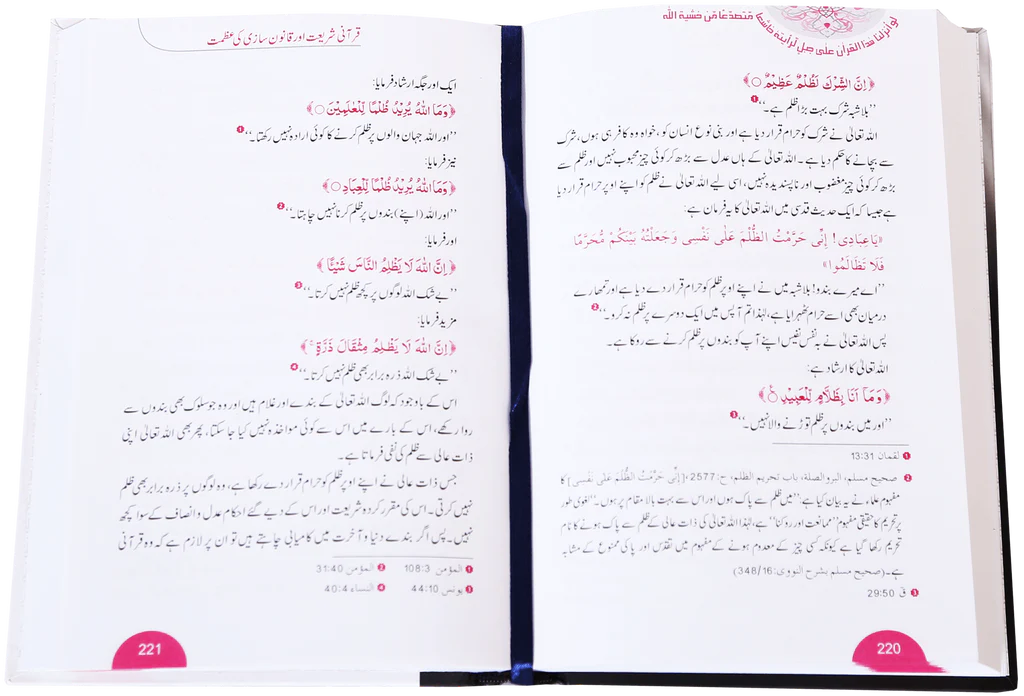 لو أنزلنا هذا القرآن على جبل لرأيته خاشعا
متصدعا من خشية الله
﴿اِنَّ الشِّرْكَ لَظُلْمٌ عَظِيْمٌ ۝﴾
’’بلاشبہ شرک بہت بڑا ظلم ہے۔‘‘ ❶
اللہ تعالیٰ نے شرک کو حرام قرار دیا ہے اور بنی نوع انسان کو، خواہ وہ کافر ہی ہوں، شرک
سے بچانے کا حکم دیا ہے۔ اللہ تعالیٰ کے ہاں عدل سے بڑھ کر کوئی چیز محبوب نہیں اور ظلم سے
بڑھ کر کوئی چیز مغضوب اور ناپسندیدہ نہیں، اسی لیے اللہ تعالیٰ نے ظلم کو اپنے اوپر حرام قرار دیا
ہے جیسا کہ ایک حدیث قدسی میں اللہ تعالیٰ کا یہ فرمان ہے:
«يَاعِبَادِى! إِنِّى حَرَّمْتُ الظُّلْمَ عَلٰى نَفْسِى وَجَعَلْتُهُ بَيْنَكُمْ مُحَرَّمًا
فَلَا تَظَالَمُوا»
’’اے میرے بندو! بلاشبہ میں نے اپنے اوپر ظلم کو حرام قرار دے دیا ہے اور تمھارے
درمیان بھی اسے حرام ٹھہرایا ہے، لہٰذا تم آپس میں ایک دوسرے پر ظلم نہ کرو۔‘‘ ❷
پس اللہ تعالیٰ نے بہ نفس نفیس اپنے آپ کو بندوں پر ظلم کرنے سے روکا ہے۔
اللہ تعالیٰ کا ارشاد ہے:
﴿وَمَآ اَنَا بِظَلَّامٍ لِّلْعَبِيْدِ ۝﴾
’’اور میں بندوں پر ظلم توڑنے والا نہیں۔‘‘ ❸
❶ لقمان 13:31
❷ صحيح مسلم، البر والصلة، باب تحريم الظلم، ح:2577۔ [إِنِّى حَرَّمْتُ الظُّلْمَ عَلٰى نَفْسِى] کا
مفہوم علماء نے یہ بیان کیا ہے: ’’میں ظلم سے پاک ہوں اور اس سے بہت بالا مقام پر ہوں۔‘‘ لغوی طور
پر تحریم کا حقیقی مفہوم ’’ممانعت اور روکنا‘‘ ہے، لہٰذا اللہ تعالیٰ کی ذات عالی کے ظلم سے پاک ہونے کا نام
تحریم رکھا گیا ہے کیونکہ کسی چیز کے معدوم ہونے کے مفہوم میں تقدس اور پاکی ممنوع کے مشابہ
ہے۔ (صحيح مسلم بشرح النووى: 348/16)
❸ قٓ 29:50
220
قرآنی شریعت اور قانون سازی کی عظمت
ایک اور جگہ ارشاد فرمایا:
﴿وَمَا اللّٰهُ يُرِيْدُ ظُلْمًا لِّلْعٰلَمِيْنَ ۝﴾
’’اور اللہ جہان والوں پر ظلم کرنے کا کوئی ارادہ نہیں رکھتا۔‘‘ ❶
نیز فرمایا:
﴿وَمَا اللّٰهُ يُرِيْدُ ظُلْمًا لِّلْعِبَادِ ۝﴾
’’اور اللہ (اپنے) بندوں پر ظلم کرنا نہیں چاہتا۔‘‘ ❷
اور فرمایا:
﴿اِنَّ اللّٰهَ لَا يَظْلِمُ النَّاسَ شَيْئًا﴾
’’بے شک اللہ لوگوں پر کچھ ظلم نہیں کرتا۔‘‘ ❸
مزید فرمایا:
﴿اِنَّ اللّٰهَ لَا يَظْلِمُ مِثْقَالَ ذَرَّةٍ﴾
’’بے شک اللہ ذرہ برابر بھی ظلم نہیں کرتا۔‘‘ ❹
اس کے باوجود کہ لوگ اللہ تعالیٰ کے بندے اور غلام ہیں اور وہ جو سلوک بھی بندوں سے
روا رکھے، اس کے بارے میں اس سے کوئی مواخذہ نہیں کیا جا سکتا، پھر بھی اللہ تعالیٰ اپنی
ذات عالی سے ظلم کی نفی فرماتا ہے۔
جس ذات عالی نے اپنے اوپر ظلم کو حرام قرار دے رکھا ہے، وہ لوگوں پر ذرہ برابر بھی ظلم
نہیں کرتی۔ اس کی مقرر کردہ شریعت اور اس کے دیے گئے احکام عدل و انصاف کے سوا کچھ
نہیں۔ پس اگر بندے دنیا و آخرت میں کامیابی چاہتے ہیں تو ان پر لازم ہے کہ وہ قرآنی
❶ المؤمن 108:3 ❷ المؤمن 31:40
❸ يونس 44:10 ❹ النساء 40:4
221